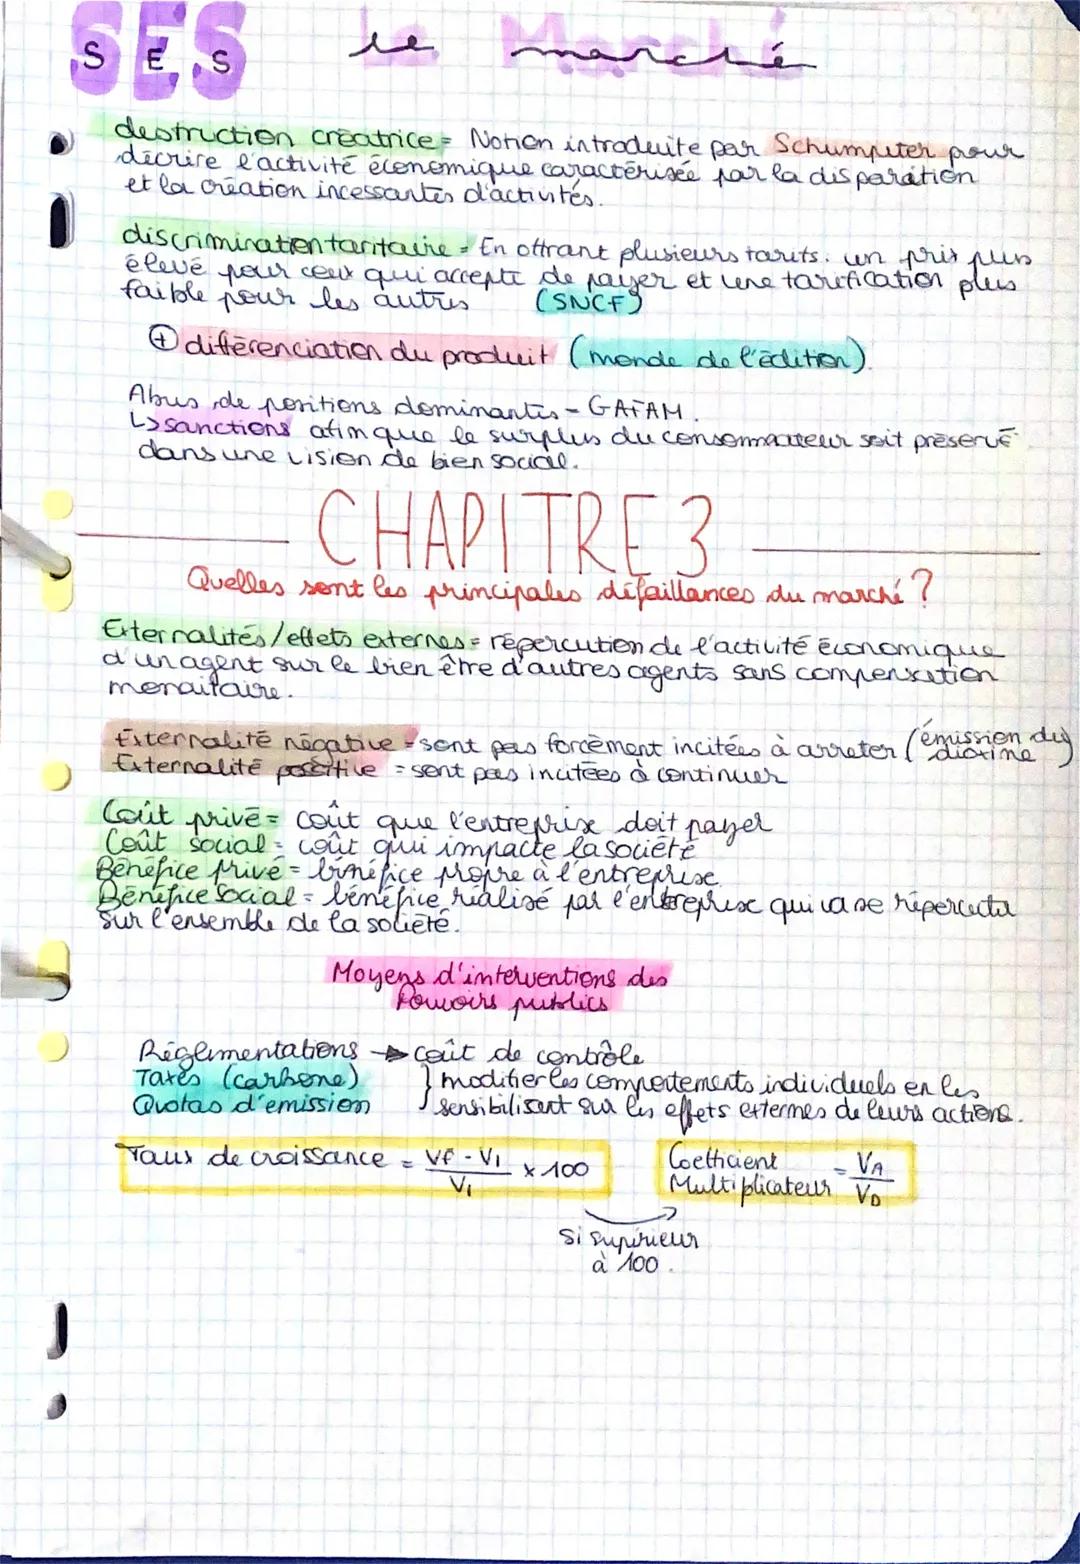 SES le Marché
destruction créatrice = Notion introduite par Schumpeter pour
décrire l'activité économique caractérisée par la disparation
et la création incessantes d'activités.
discrimination tarifaire = En offrant plusieurs tarifs. un prix plus
élevé pour ceux qui accepte de payer et une tarification plus
faible pour les autres (SNCF)
+ différenciation du produit (monde de l'édition).
Abus de positions dominantes - GAFAM.
↳ sanctions afin que le surplus du consommateur soit préservé
dans une vision de bien social.
CHAPITRE 3
Quelles sont les principales défaillances du marché ?
Externalités/effets externes = répercution de l'activité économique
d'un agent sur le bien être d'autres agents sans compensation
monaitaire.
Externalité négative = sont pas forcément incitées à arreter (émission de dioxine)
Externalité positive = sont pas incitées à continuer
Coût privé = coût que l'entreprise doit payer
Coût social = coût qui impacte la société
Bénéfice privé = bénéfice propre à l'entreprise
Bénéfice social = bénéfice réalisé par l'entreprise qui va se répercuter
sur l'ensemble de la société.
Moyens d'interventions des
Pouvoirs publics
Réglementations → coût de contrôle
Taxes (carbone) } modifier les comportements individuels en les
Quotas d'émission sensibilisant sur les effets externes de leurs actions.
Taux de croissance = Vf - Vi / Vi × 100
Coefficient Multiplicateur = VA / VD
si supérieur
à 100.